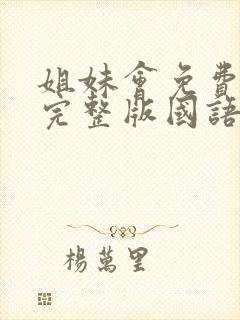 姐妹會免費
完整版國語
楊萬里